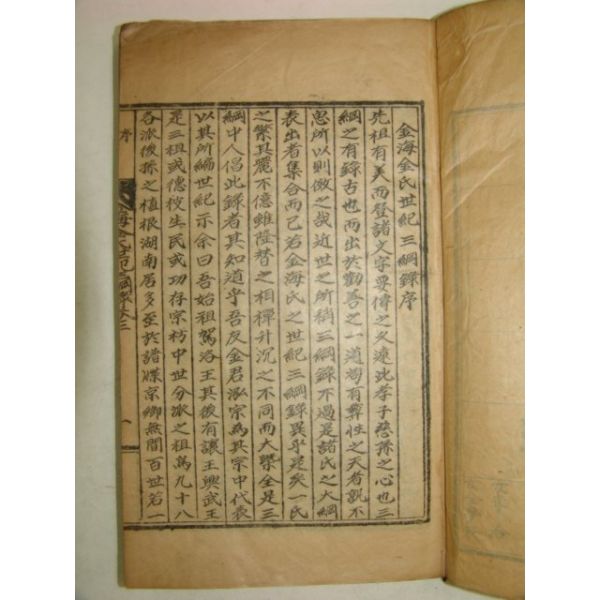 金海金氏世紀三綱錄序
先祖有美而登諸文字要傳之久遠此孝子慈孫之心也三
綱之有錄古也而出於勸善之一道苟有彛性之天者孰不
思所以則倣之哉近世之所稱三綱錄不過是諸氏之大綱
表出者集合而已若金海氏之世紀三綱錄異乎是矣一氏
之繁其麗不億雖隆替之相禪升沉之不同而大槩全是三
綱中人倡此錄者其知道乎吾友金君泓宗爲其宗中代表
以其所編世紀示余曰吾始祖駕洛王其後有讓王興武王
是三祖或德校生民或功存宗祊中世分派之祖爲九十八
各派後孫之植根湖南居多至於譜牒京鄉無間百世若一
序
金海金氏世紀三綱錄卷三